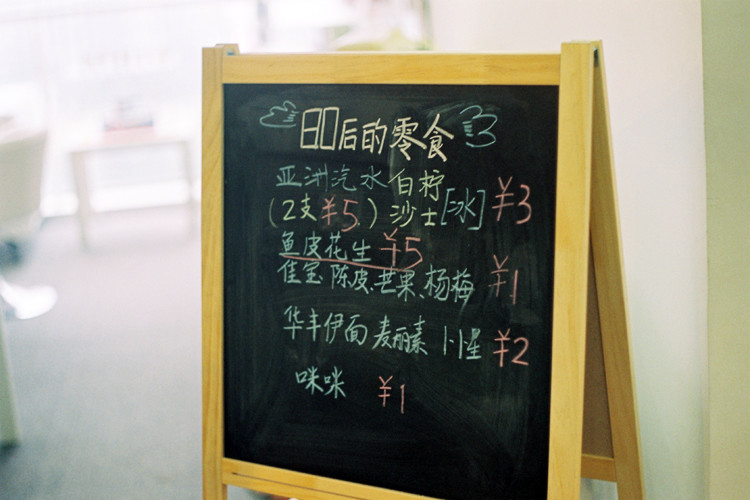 80后的零食
亚洲汽水 白柠
(2支¥5.) 沙士[冰] ¥3
鱼皮花生 ¥5
佳宝陈皮、芒果、杨梅 ¥1
华丰伊面 麦丽素 卜卜星 ¥2
咪咪 ¥1